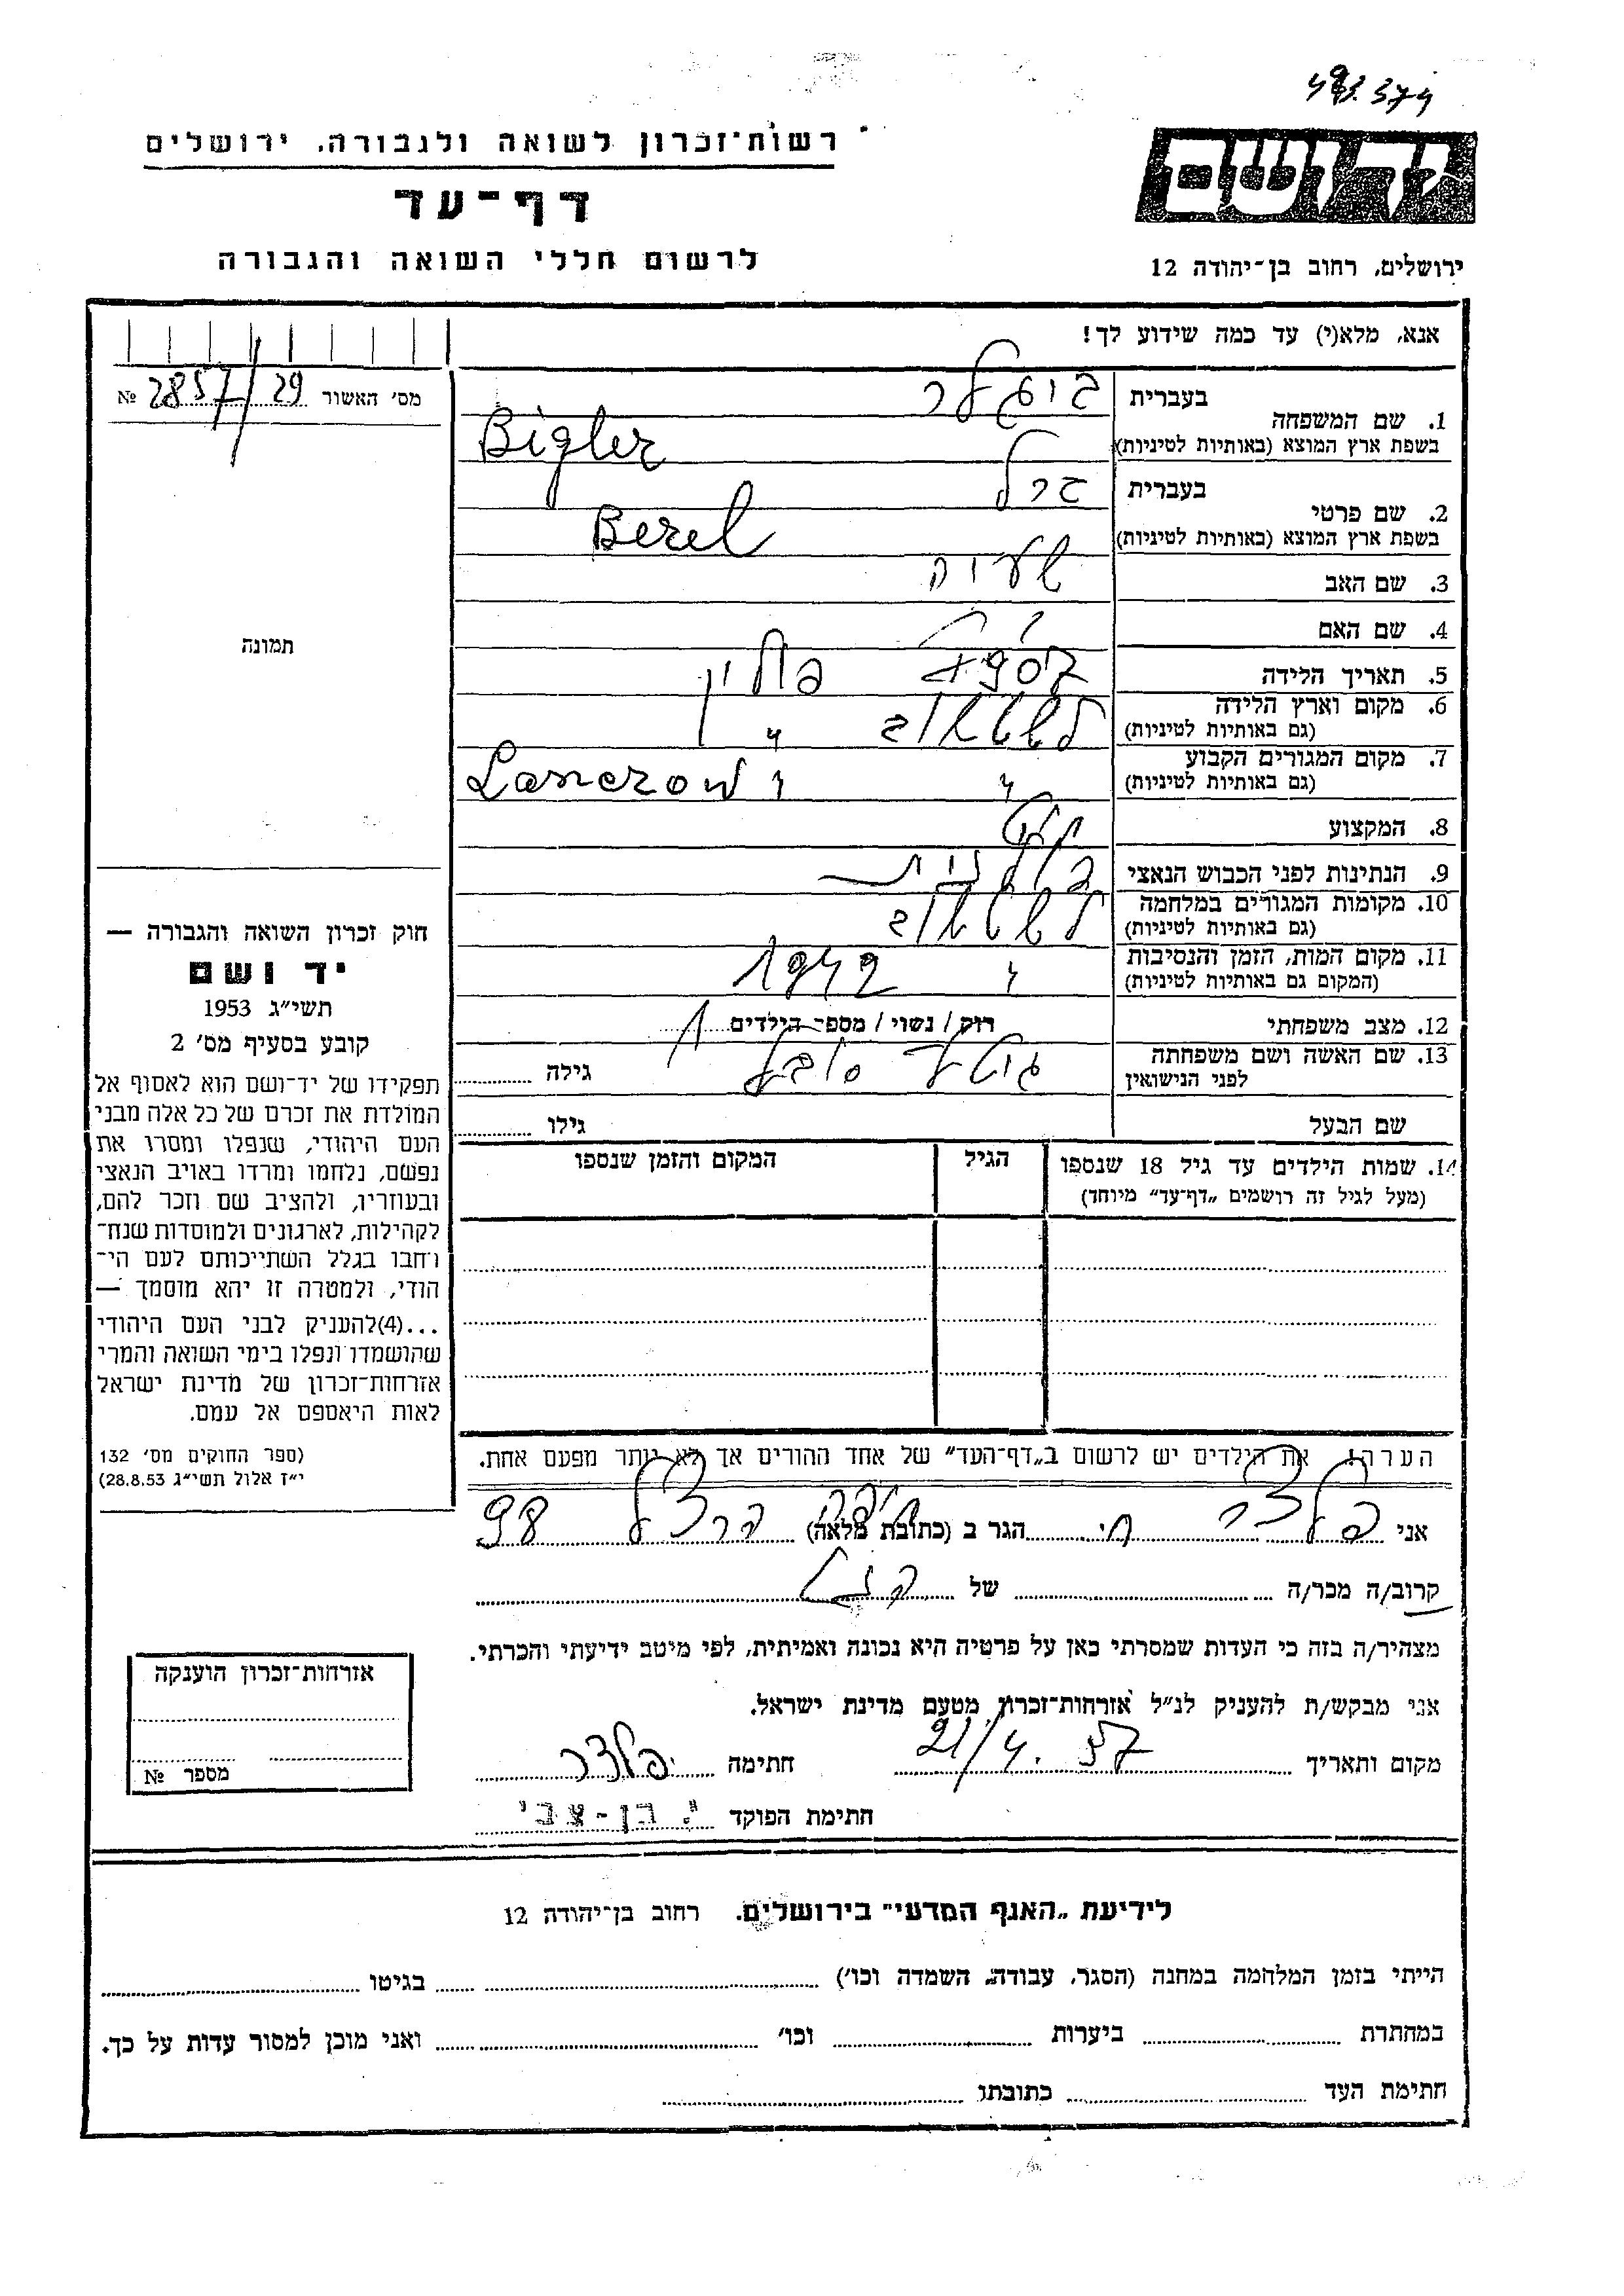 493.374
רשות־זכרון לשואה ולגבורה, ירושלים
ידושם
דף־עד
לרשום חללי השואה והגבורה
ירושלים, רחוב בן־יהודה 12
אנא, מלא(י) עד כמה שידוע לך!
מס' האשור 2857/29 №
תמונה
1. שם המשפחה
בעברית ביגלר
בשפת ארץ המוצא (באותיות לטיניות) Bigler
2. שם פרטי
בעברית ברל
בשפת ארץ המוצא (באותיות לטיניות) Berel
3. שם האב שעיה
4. שם האם
5. תאריך הלידה
6. מקום וארץ הלידה פולין
(גם באותיות לטיניות)
7. מקום המגורים הקבוע " "
(גם באותיות לטיניות)
8. המקצוע
9. הנתינות לפני הכבוש הנאצי
10. מקומות המגורים במלחמה
(גם באותיות לטיניות)
11. מקום המות, הזמן והנסיבות " 1942
(המקום גם באותיות לטיניות)
12. מצב משפחתי רוק / נשוי / מספר הילדים 1
13. שם האשה ושם משפחתה
לפני הנישואין גילה
שם הבעל גילו
14. שמות הילדים עד גיל 18 שנספו הגיל המקום והזמן שנספו
(מעל לגיל זה רושמים „דף־עד" מיוחד)
הערה! את הילדים יש לרשום ב„דף־העד" של אחד ההורים אך לא יותר מפעם אחת.
חוק זכרון השואה והגבורה —
יד ושם
תשי״ג 1953
קובע בסעיף מס' 2
תפקידו של יד־ושם הוא לאסוף אל
המולדת את זכרם של כל אלה מבני
העם היהודי, שנפלו ומסרו את
נפשם, נלחמו ומרדו באויב הנאצי
ובעוזריו, ולהציב שם וזכר להם,
לקהילות, לארגונים ולמוסדות שנח־
רחבו בגלל השתייכותם לעם הי־
הודי, ולמטרה זו יהא מוסמך —
...(4)להעניק לבני העם היהודי
שהושמדו ונפלו בימי השואה והמרי
אזרחות־זכרון של מדינת ישראל
לאות היאספם אל עמם.
(ספר החוקים מס' 132
י״ז אלול תשי״ג 28.8.53)
אני חי הגר ב (כתובת מלאה) חיפה הרצל 98
קרוב/ה מכר/ה של
מצהיר/ה בזה כי העדות שמסרתי כאן על פרטיה היא נכונה ואמיתית, לפי מיטב ידיעתי והכרתי.
אני מבקש/ת להעניק לנ״ל אזרחות־זכרון מטעם מדינת ישראל.
מקום ותאריך 21/4. 57 חתימה
חתימת הפוקד י. בן-צבי
אזרחות־זכרון הוענקה
מספר №
לידיעת „האגף המדעי" בירושלים. רחוב בן־יהודה 12
הייתי בזמן המלחמה במחנה (הסגר, עבודה, השמדה וכו') בגיטו
במחתרת ביערות וכו' ואני מוכן למסור עדות על כך.
חתימת העד כתובתו